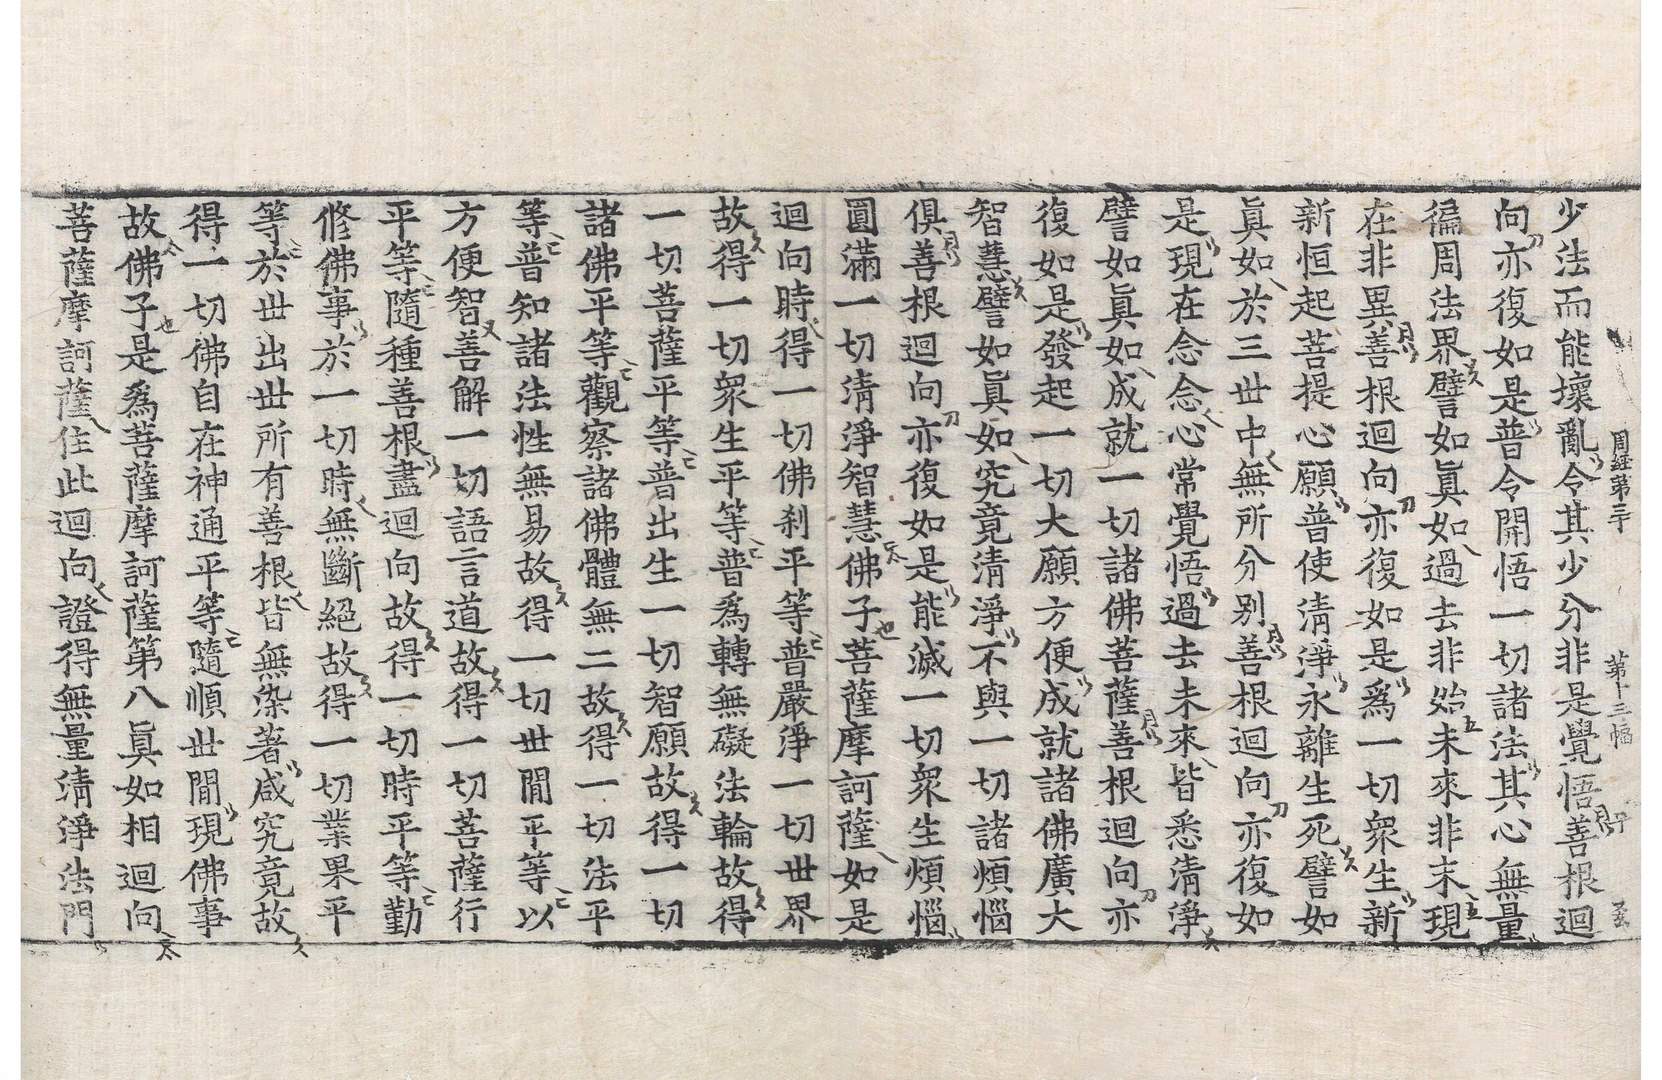 周經第三十 第十三幅
少法而能壞亂令其少分非是覺悟善根迴
向亦復如是普令開悟一切諸法其心無量
徧周法界譬如眞如過去非始未來非末現
在非異善根迴向亦復如是爲一切衆生新
新恒起菩提心願普使清淨永離生死譬如
眞如於三世中無所分别善根迴向亦復如
是現在念念心常覺悟過去未來皆悉清淨
譬如眞如成就一切諸佛菩薩善根迴向亦
復如是發起一切大願方便成就諸佛廣大
智慧譬如眞如究竟清淨不與一切諸煩惱
俱善根迴向亦復如是能滅一切衆生煩惱
圓滿一切清淨智慧佛子菩薩摩訶薩如是
迴向時得一切佛刹平等普嚴淨一切世界
故得一切衆生平等普爲轉無礙法輪故得
一切菩薩平等普出生一切智願故得一切
諸佛平等觀察諸佛體無二故得一切法平
等普知諸法性無易故得一切世間平等以
方便智善解一切語言道故得一切菩薩行
平等隨種善根盡迴向故得一切時平等勤
修佛事於一切時無斷絕故得一切業果平
等於世出世所有善根皆無染著咸究竟故
得一切佛自在神通平等隨順世間現佛事
故佛子是爲菩薩摩訶薩第八眞如相迴向
菩薩摩訶薩住此迴向證得無量清淨法門